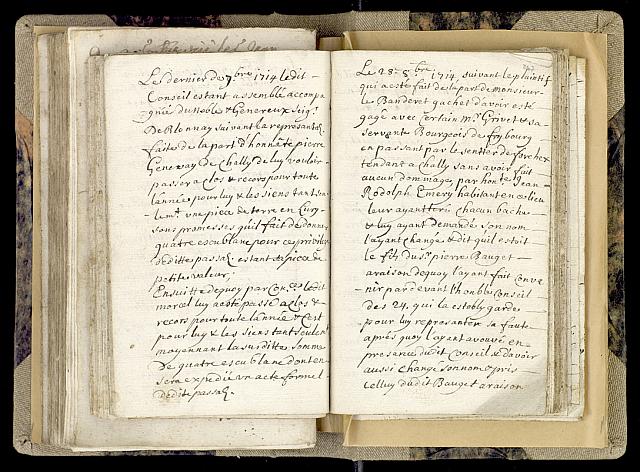 Le dernier du 7bre 1714 ledit
Conseil estant assemblé accompa
gnié du Noble & Genereux Seigr
De Blonnay suivant la representaôn
faite de la part d'honnête pierre
Genevay de Chally de luy vouloir
passer a clos & record pour toute
lannée pour luy & les siens tant seu
lemt un piece de terre en Cury
sous promesses quil fait de donner
quatre escu blanc pour ce privilege
deditte passaôn estant de piece de
petite valeur,
Ensuitte dequoy par Conce ledit
morcel luy a esté passé a clos &
record pour toute lannée & C'est
pour luy & les siens tant seulemt
moyennant la surditte somme
de quatre escu blanc dont en
sera expedié un acte formel
dedite passaôn.
Le 28e 8bre 1714, suivant le plaintif
qui a esté fait de la part de monsieur
le Banderet gachet d'avoir esté
gagé avec certain mr Grivet & sa
servente Bourgeois de frybourg
en passant par le sentier de forchex
tendant a Chally sans avoir fait
aucun dommage, par honble Jean
Rodolph Emery habitant en ce lieu
leur ayant chacun baché
& luy ayant demandé son nom
layant changé & dit quil estoit
le fils du Sr pierre Bauget
araison dequoy layant fait conve
nir par devant l'honble Conseil
des 24, qui la estably garde
pour luy representer sa faute
aprés quoy layant avoué en
presence dudit Conseil & d'avoir
aussi changé son nom & pris
celluy dudit Bauget araison